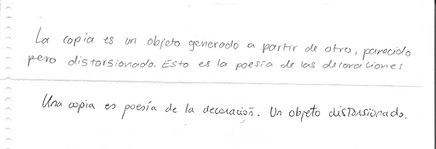 La copia es un objeto generado a partir de otro, parecido
pero distorsionado. Esto es la poesía de las decoraciones
Una copia es poesía de la decoración. Un objeto distorsionado.